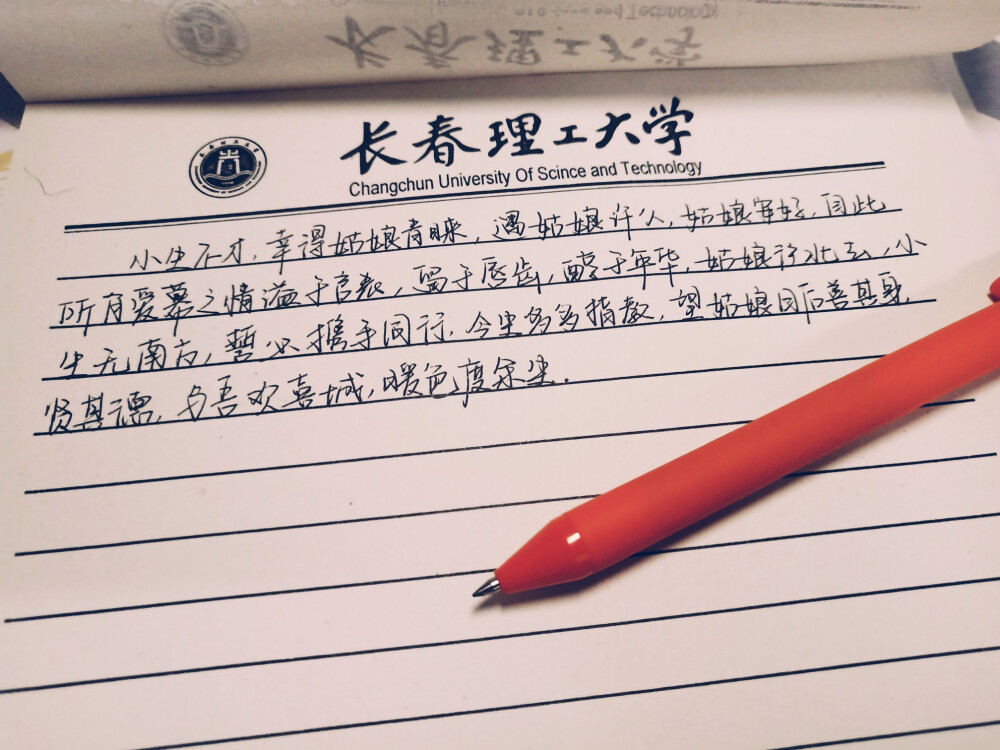 长春理工大学
Changchun University Of Scince and Technology
小生不才,幸得姑娘青睐,遇姑娘许久,姑娘安好,因此
所有爱慕之情溢于言表,留于唇齿,醉于年华,姑娘行北去,小
生无南方,誓必携手同行.今生多多指教,望姑娘日后善其身,
贤其德,与吾欢喜城,暖色度余生.